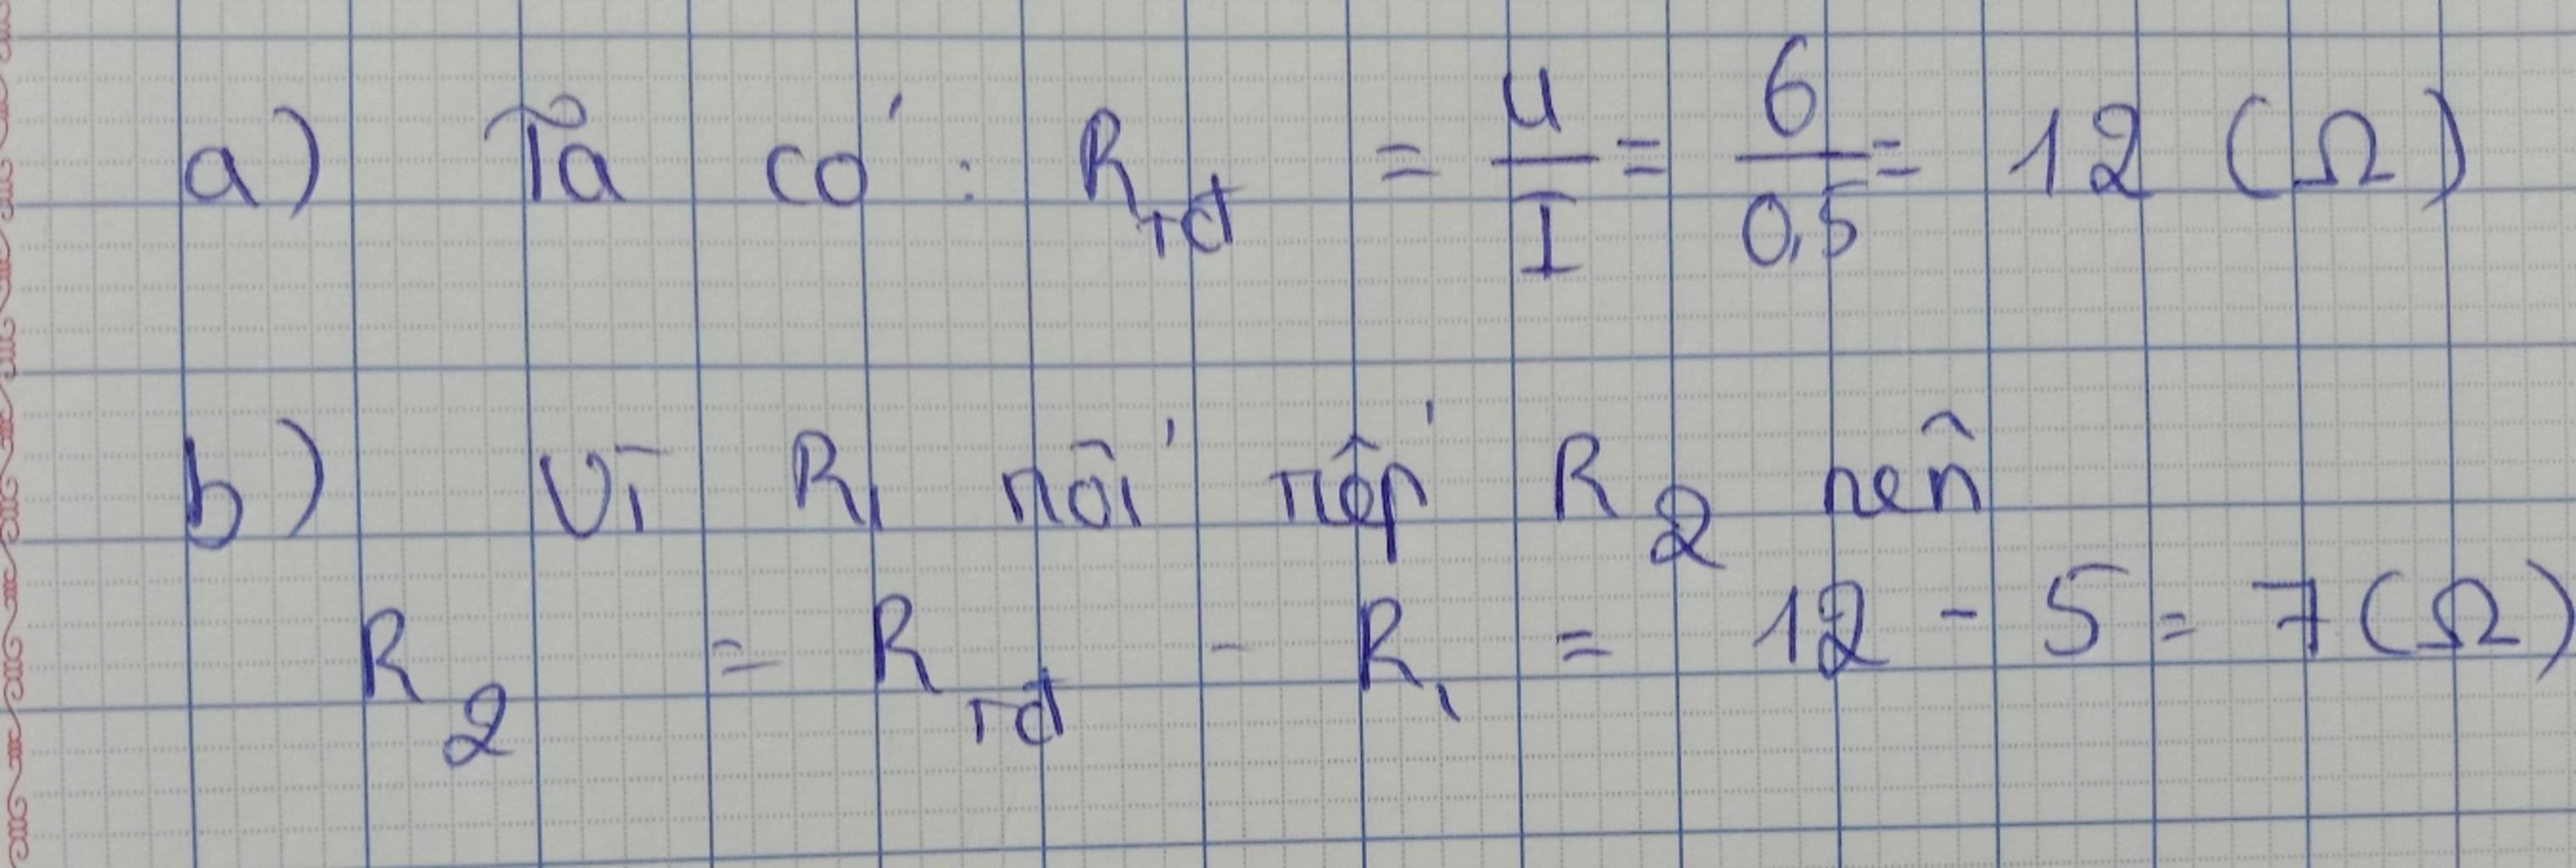 a) Ta có: Rtđ = U/I = 6/0,5 = 12 (Ω)
b) Vì R1 nối tiếp R2 nên
R2 = Rtđ - R1 = 12 - 5 = 7 (Ω)